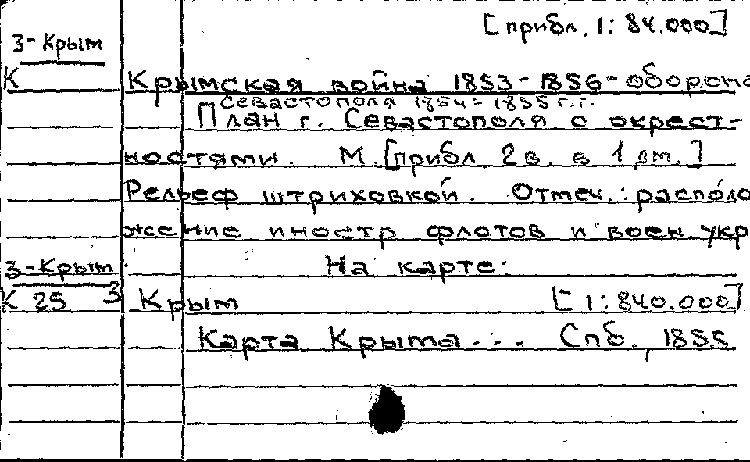 [прибл. 1: 84.000]
3-Крым
К
Крымская война 1853-1856-оборона
Севастополя 1854-1855 г.г.
План г. Севастополя с окрест-
ностями. М.[прибл. 2 в. в 1 дм.]
Рельеф штриховкой. Отмеч.: располо
жение иностр флотов и воен укр
На карте:
3-Крым
К 25 3
Крым [1:840.000]
Карта Крыма... Спб., 1855